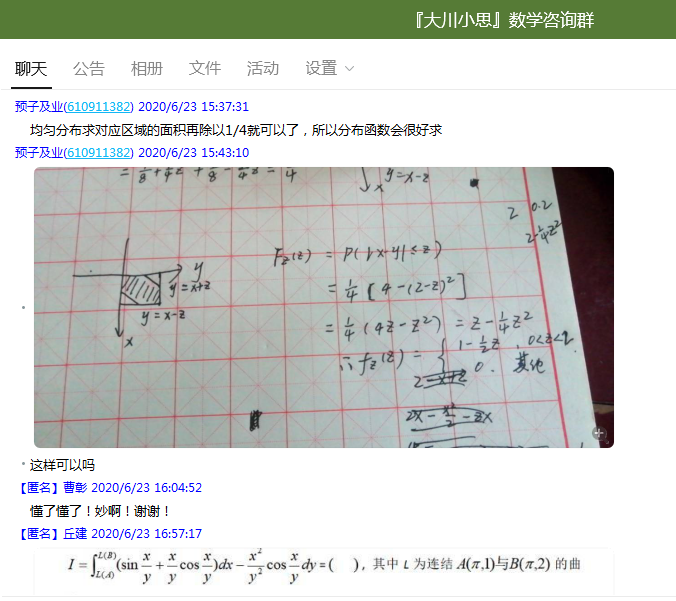 『大川小思』数学咨询群
聊天 公告 相册 文件 活动 设置
预子及业(610911382) 2020/6/23 15:37:31
均匀分布求对应区域的面积再除以1/4就可以了，所以分布函数会很好求
预子及业(610911382) 2020/6/23 15:43:10
y=x-z
x
2 0.2
2-¼z²
y
y=x+z
y=x-z
x
F_Z(z) = P(|x-y|≤z)
= ¼[4-(2-z)²]
= ¼(4z-z²) = z-¼z²
∴ f_Z(z) = { 1-½z, 0<z<2.
0. 其他
这样可以吗
【匿名】曹彰 2020/6/23 16:04:52
懂了懂了！妙啊！谢谢！
【匿名】丘建 2020/6/23 16:57:17
I=∫_{L(A)}^{L(B)}(sin x/y + x/y cos x/y)dx − x²/y² cos x/y dy=( )，其中 L 为连结 A(π,1)与B(π,2) 的曲